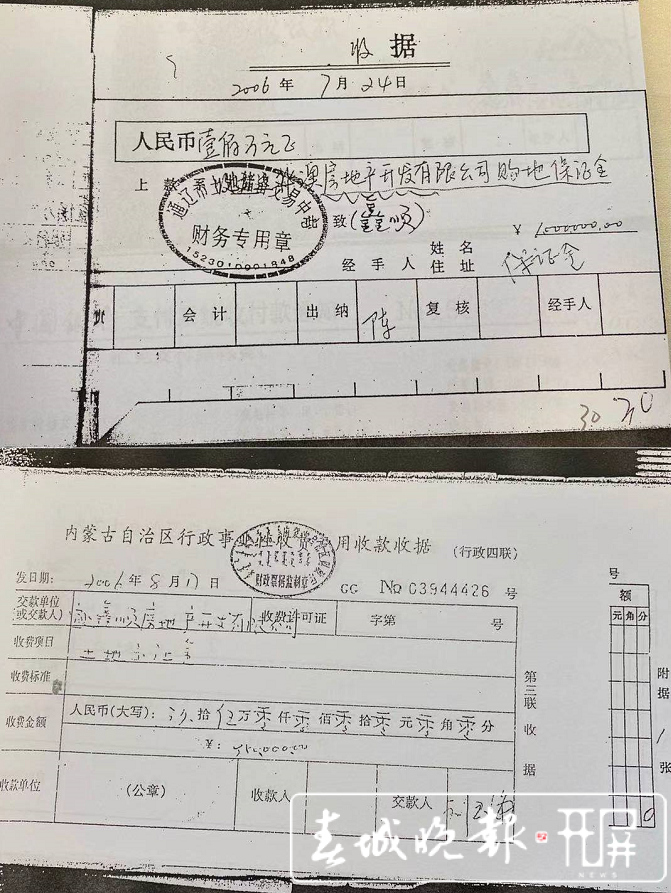 收据
2006年7月24日
人民币壹佰万元正
上款 房地产开发有限公司购地保证金
通辽市土地 交易中
财务专用章
1523010001848
致(鑫顺)
¥1000000.00
姓名
经手人 住址 保证金
会计 出纳 陈 复核 经手人
内蒙古自治区行政事业性收费 用收款收据 (行政四联)
财政票据监制章
发日期: 2006年8月17日 GG № 03944426 号
交款单位
(或交款人) 鑫顺房地产开发有限 收费许可证 字第 号
收费项目 土地
收费标准
收费金额 人民币(大写): 拾伍万零仟零佰零拾零元零角零分
¥:
收款单位 (公章) 收款人 交款人
第三联 收据
号
额
元角分
0
附
据
1
张
春城晚报 开屏
NEWS